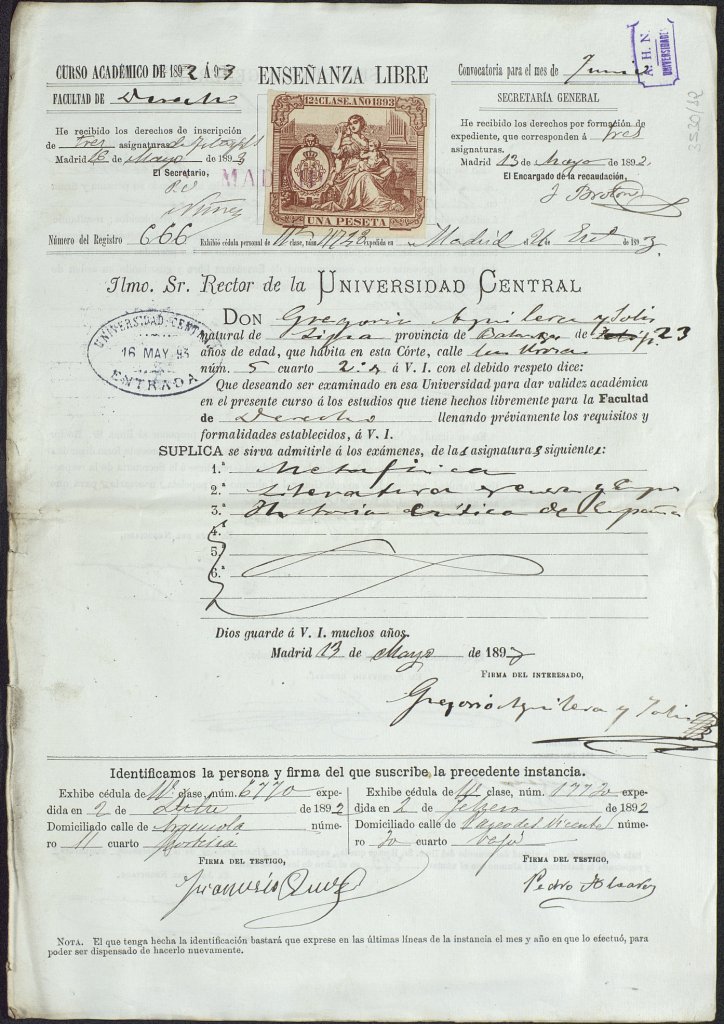 CURSO ACADÉMICO DE 1892 Á 93
ENSEÑANZA LIBRE
Convocatoria para el mes de Junio
A. H. N.
UNIVERSIDADES
3530/12
FACULTAD DE Derecho
SECRETARÍA GENERAL
He recibido los derechos de inscripción
de tres asignaturas
Madrid 16 de Mayo de 1893
El Secretario,
Núñez
12ª CLASE. AÑO 1893
UNA PESETA
MADRID
He recibido los derechos por formación de
expediente, que corresponden á tres
asignaturas.
Madrid 13 de Mayo de 1892.
El Encargado de la recaudación,
Número del Registro 666
Exhibió cédula personal de 11ª clase, núm. expedida en Madrid el de de 1893
Ilmo. Sr. Rector de la UNIVERSIDAD CENTRAL
UNIVERSIDAD CENTRAL
16 MAY. 93
ENTRADA
DON Gregorio Aguilera y Solis
natural de Lipa provincia de Batangas de 23
años de edad, que habita en esta Córte, calle
núm. 5 cuarto 2.º á V. I. con el debido respeto dice:
Que deseando ser examinado en esa Universidad para dar validez académica
en el presente curso á los estudios que tiene hechos libremente para la Facultad
de Derecho llenando préviamente los requisitos y
formalidades establecidos, á V. I.
SUPLICA se sirva admitirle á los exámenes, de las asignaturas siguientes:
1.ª Metafísica
2.ª Literatura general y Esp
3.ª Historia Crítica de España
4.ª
5.ª
6.ª
Dios guarde á V. I. muchos años.
Madrid 13 de Mayo de 1893
FIRMA DEL INTERESADO,
Gregorio Aguilera y Solis
Identificamos la persona y firma del que suscribe la precedente instancia.
Exhibe cédula de 11ª clase, núm. 6770 expe-
dida en 2 de de 1892
Domiciliado calle de Argensola núme-
ro 11 cuarto
FIRMA DEL TESTIGO,
Exhibe cédula de clase, núm. 17720 expe-
dida en 2 de Febrero de 1892
Domiciliado calle de núme-
ro 20 cuarto bajo
FIRMA DEL TESTIGO,
Pedro Alvarez
NOTA. El que tenga hecha la identificación bastará que exprese en las últimas líneas de la instancia el mes y año en que lo efectuó, para
poder ser dispensado de hacerlo nuevamente.